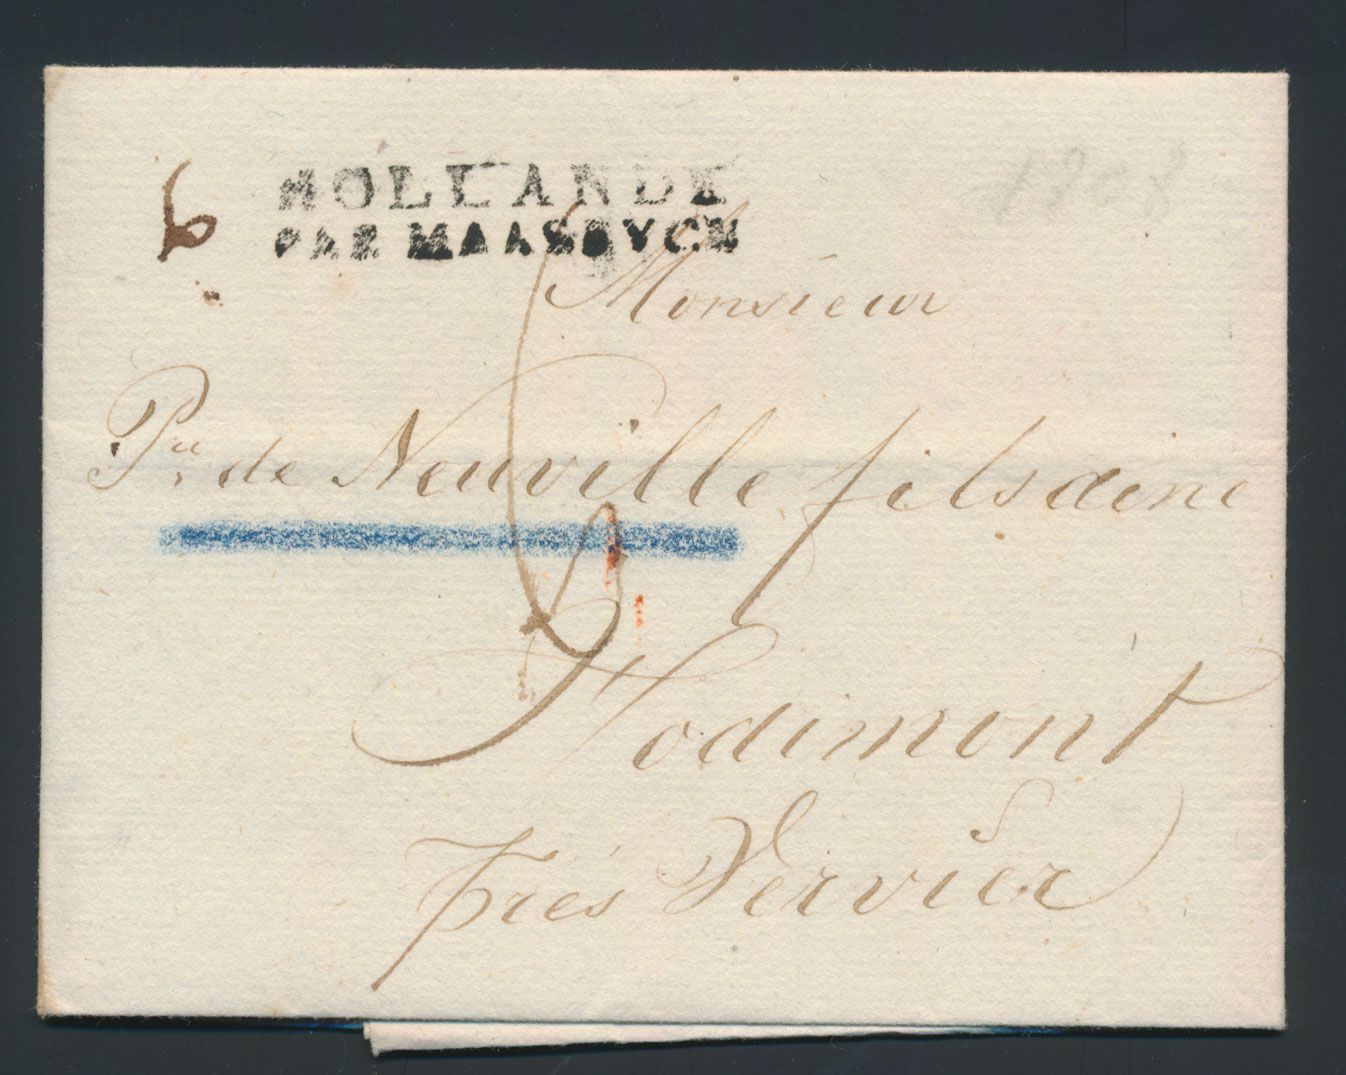 1808
6
HOLLANDE
PAR MAASEYCK
Monsieur
Pre de Neuville fils aine
Hodimont
prés Vervier